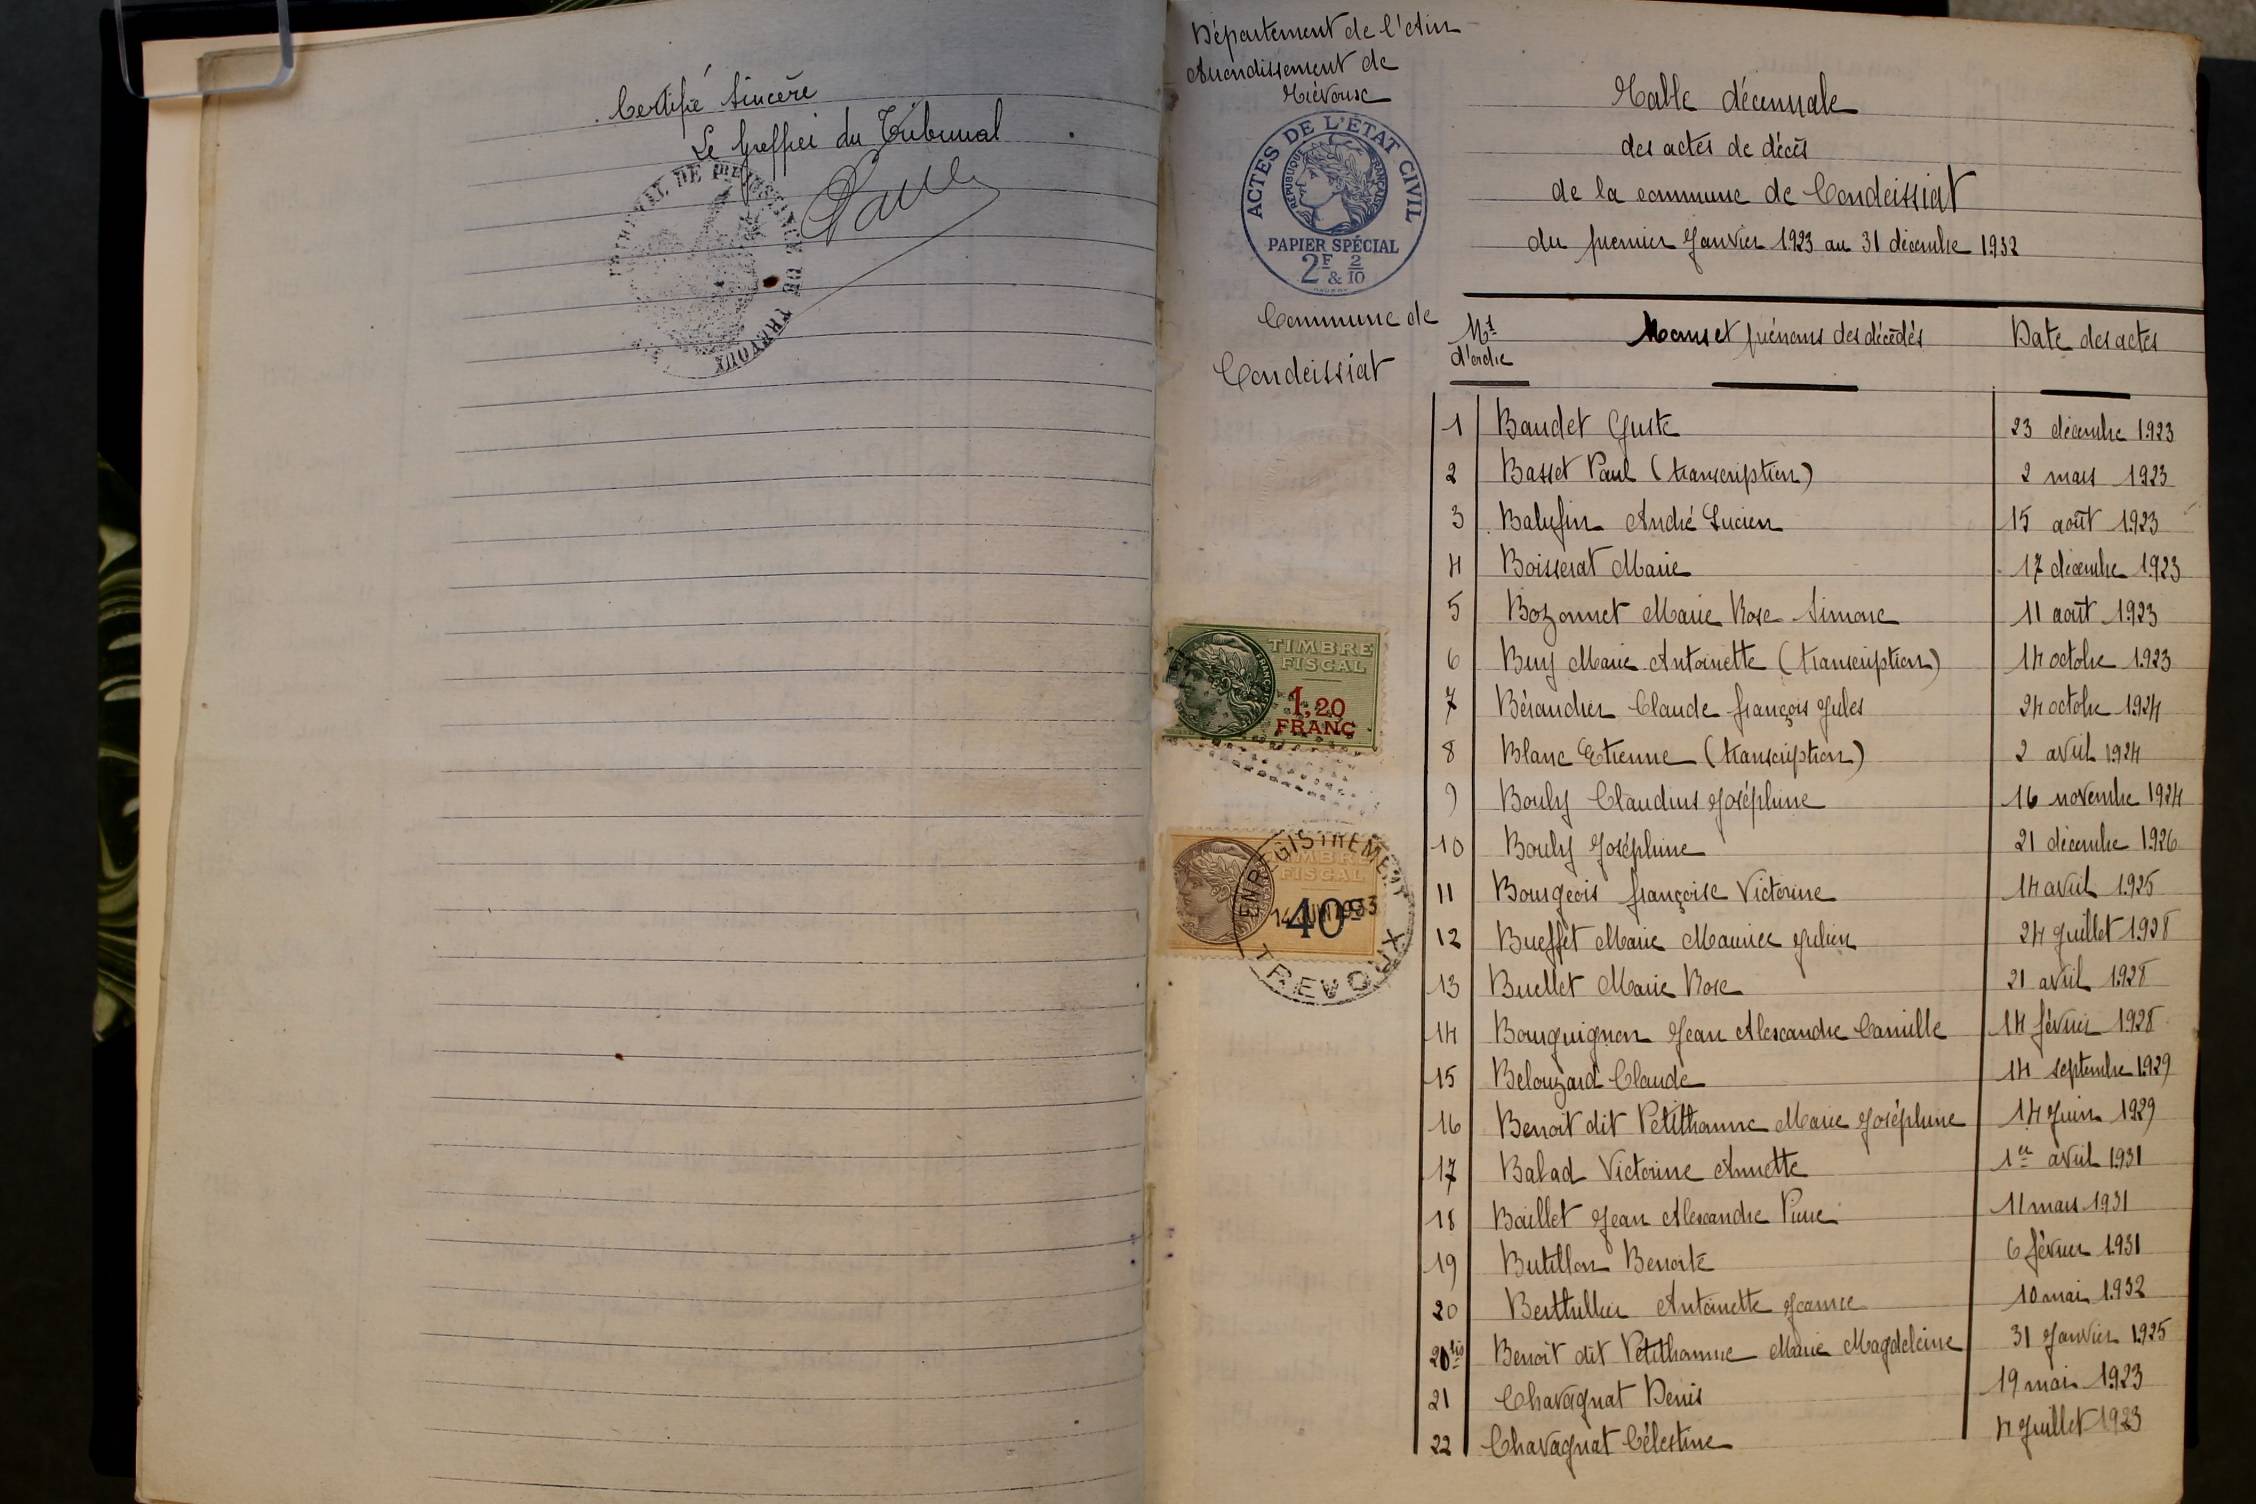 Certifié sincère
Le Greffier du Tribunal
TRIBUNAL DE 1RE INSTANCE DE TREVOUX
Département de l'Ain
Arrondissement de
Trévoux
ACTES DE L'ÉTAT CIVIL
RÉPUBLIQUE FRANÇAISE
PAPIER SPÉCIAL
2F & 2/10
Commune de
Condeissiat
TIMBRE
FISCAL
1,20
FRANC
ENREGISTREMENT
TIMBRE
FISCAL
14 JUIN 1933
40c
TREVOUX
Table décennale
des actes de décès
de la commune de Condeissiat
du premier Janvier 1923 au 31 décembre 1932
Nos d'ordre Noms et prénoms des décédés Date des actes
1 Baudet Juste 23 décembre 1923
2 Basset Paul (transcription) 2 mars 1923
3 Balufin André Lucien 15 août 1923
4 Boisserat Marie 17 décembre 1923
5 Bozonnet Marie Rose Simone 11 août 1923
6 Buy Marie Antoinette (transcription) 14 octobre 1923
7 Béraudier Claude françois Jules 24 octobre 1924
8 Blanc Etienne (transcription) 2 avril 1924
9 Bouly Claudius Joséphine 16 novembre 1924
10 Bouly Joséphine 21 décembre 1926
11 Bourgeois françoise Victorine 14 avril 1925
12 Bueffet Marie Maurice Julien 24 Juillet 1928
13 Buellet Marie Rose 21 avril 1928
14 Bourguignon Jean Alexandre Camille 14 février 1928
15 Belouzard Claude 14 septembre 1929
16 Benoit dit Petithomme Marie Joséphine 14 Juin 1929
17 Balad Victorine Annette 1er avril 1931
18 Baillet Jean Alexandre Pierre 11 mars 1931
19 Butillon Benoîte 6 février 1931
20 Berthillier Antoinette Jeanne 10 mai 1932
20 bis Benoit dit Petithomme Marie Magdeleine 31 Janvier 1925
21 Chavagnat Denis 19 mai 1923
22 Chavagnat Célestine 4 Juillet 1923